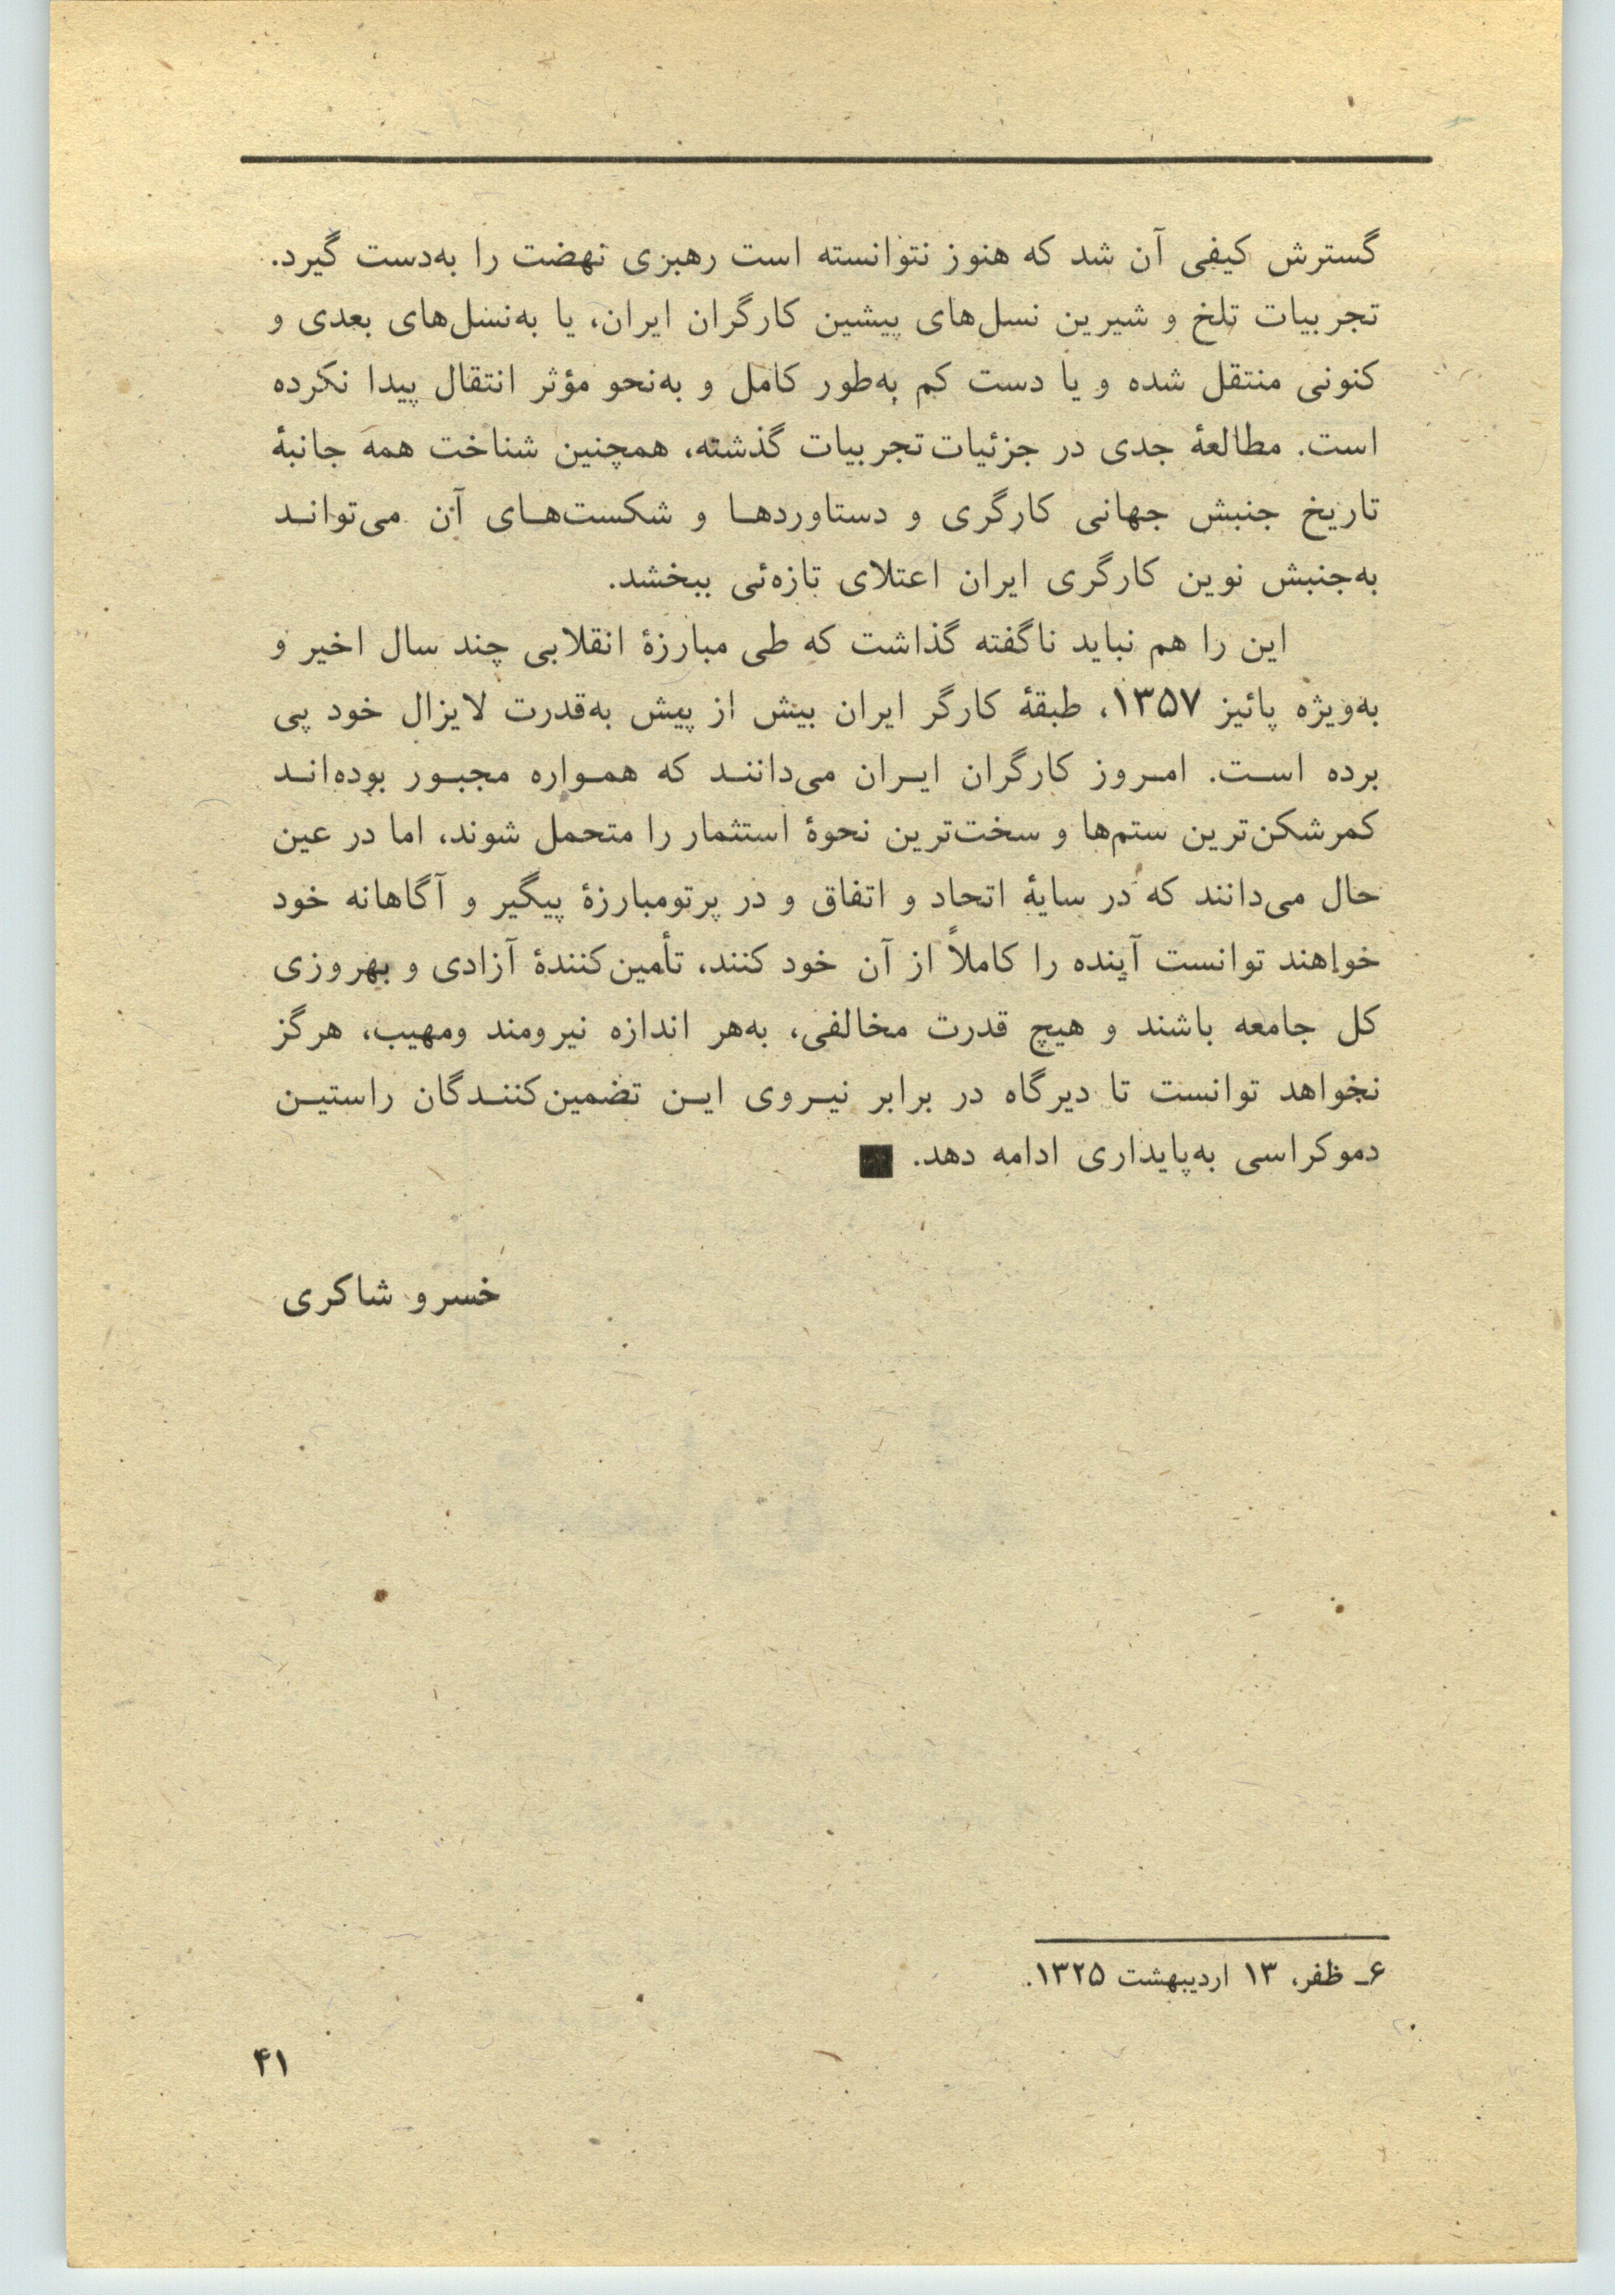 گسترش کیفی آن شد که هنوز نتوانسته است رهبری نهضت را به‌دست گیرد.
تجربیات تلخ و شیرین نسل‌های پیشین کارگران ایران، یا به‌نسل‌های بعدی و
کنونی منتقل شده و یا دست کم به‌طور کامل و به‌نحو مؤثر انتقال پیدا نکرده
است. مطالعهٔ جدی در جزئیات تجربیات گذشته، همچنین شناخت همه جانبهٔ
تاریخ جنبش جهانی کارگری و دستاوردهـا و شکست‌هـای آن می‌توانـد
به‌جنبش نوین کارگری ایران اعتلای تازه‌ئی ببخشد.
این را هم نباید ناگفته گذاشت که طی مبارزهٔ انقلابی چند سال اخیر و
به‌ویژه پائیز ۱۳۵۷، طبقهٔ کارگر ایران بیش از پیش به‌قدرت لایزال خود پی
برده اسـت. امـروز کارگران ایـران می‌داننـد که همـواره مجبـور بوده‌انـد
کمرشکن‌ترین ستم‌ها و سخت‌ترین نحوهٔ استثمار را متحمل شوند، اما در عین
حال می‌دانند که در سایهٔ اتحاد و اتفاق و در پرتومبارزهٔ پیگیر و آگاهانه خود
خواهند توانست آینده را کاملاً از آن خود کنند، تأمین‌کنندهٔ آزادی و بهروزی
کل جامعه باشند و هیچ قدرت مخالفی، به‌هر اندازه نیرومند ومهیب، هرگز
نخواهد توانست تا دیرگاه در برابر نیـروی ایـن تضمین‌کننـدگان راستیـن
دموکراسی به‌پایداری ادامه دهد. ■
خسرو شاکری
۶ـ ظفر، ۱۳ اردیبهشت ۱۳۲۵.
۴۱